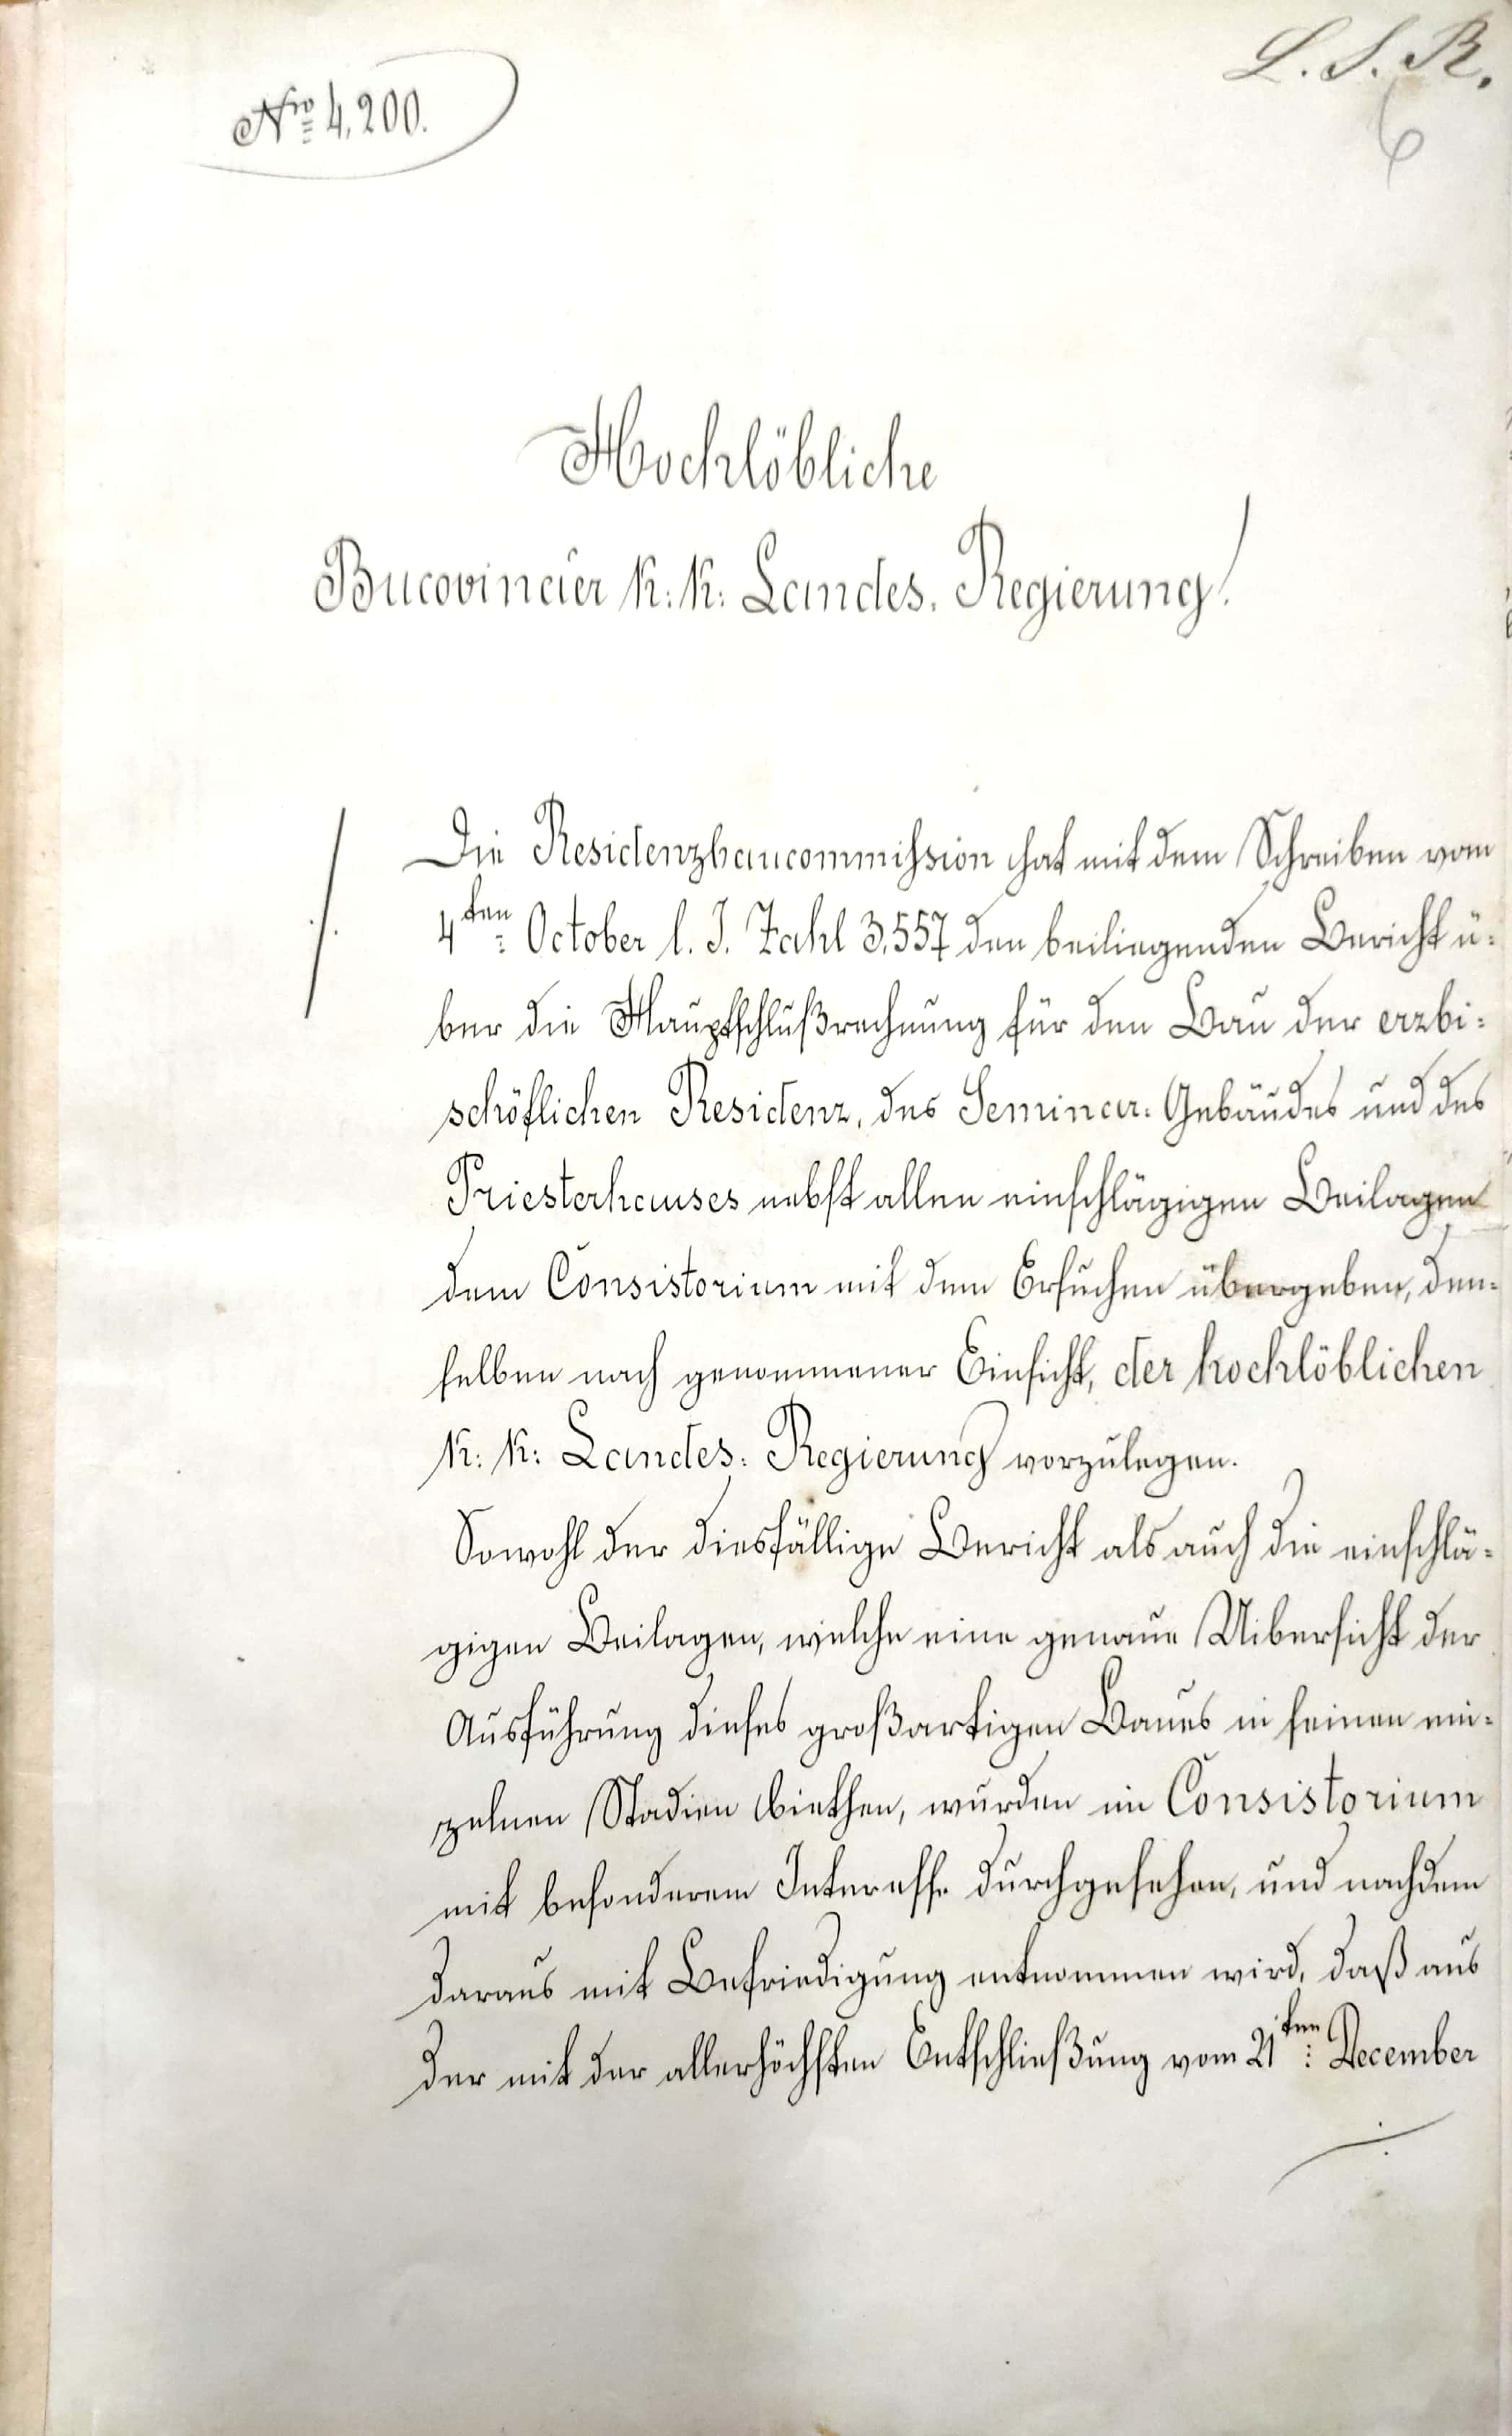 L. S. R.
Nro 4,200.
Hochlöbliche
Bucovinaer k: k: Landes-Regierung!
Die Residenzbaucommission hat mit dem Schreiben vom
./.
4ten October l. J. Zahl 3,557 den beiliegenden Bericht ü-
ber die Hauptschlußrechnung für den Bau der erzbi-
schöflichen Residenz, des Seminar-Gebäudes und des
Priesterhauses nebst allen einschlägigen Beilagen
dem Consistorium mit dem Ersuchen übergeben, den-
selben nach genommener Einsicht, der hochlöblichen
k: k: Landes-Regierung vorzulegen.
Sowohl der diesfällige Bericht als auch die einschlä-
gigen Beilagen, welche eine genaue Uibersicht der
Ausführung dieses großartigen Baues in seinen ein-
zelnen Stadien biethen, wurden im Consistorium
mit besonderem Interesse durchgesehen, und nachdem
daraus mit Befriedigung entnommen wird, daß aus
der mit der allerhöchsten Entschließung vom 21ten December
./.